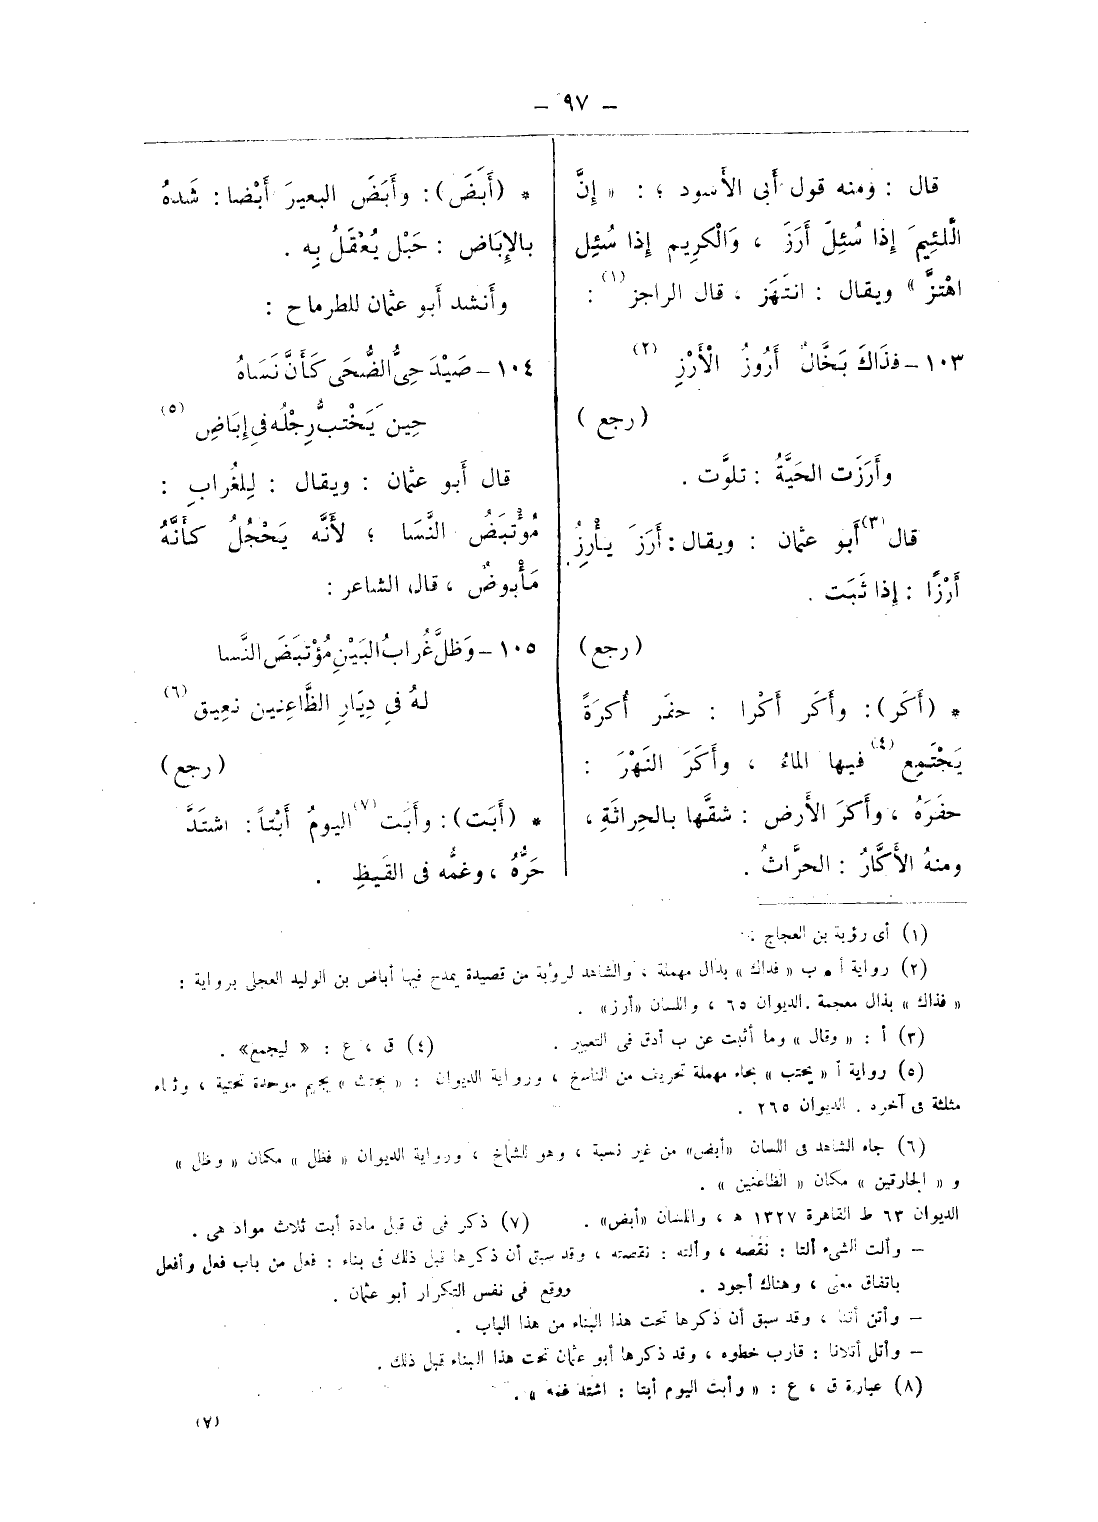 — ٩٧ —
قال : ومنه قول أبى الأسود ؛ : « إنَّ
الَّلئِيمَ إذا سُئِلَ أَرَزَ ، وَالْكرِيم إذا سُئِل
اهْتزَّ » ويقال : انتَهَز ، قال الراجز (١) :
١٠٣ – فذَاكَ بَخَّالٌ أَرُوزُ الْأَرْزِ (٢)
( رجع )
وأَرَزَت الحَيَّةُ : تلوَّت .
قال (٣) أَبو عثمان : ويقال : أَرَزَ يأْرِزُ
أَرْزًا : إذا ثَبَت .
( رجع )
* ( أَكَر ) : وأَكَر أَكْرا : حفَر أُكرَةً
يَجْتَمِع (٤) فيها الماءُ ، وأَكَرَ النَهْرَ :
حفَرَهُ ، وأَكرَ الأَرض : شقَّها بالحِراثَةِ ،
ومنهُ الأَكَّارُ : الحرَّاثُ .
* ( أَبَضَ ) : وأَبَضَ البعيرَ أَبْضا : شَدهُ
بالإِبَاض : حَبْل يُعْقَلُ بِه .
وأَنشد أبو عثمان للطرماح :
١٠٤ – صَيْدَحِىُّ الضُّحَى كَأَنَّ نَسَاهُ
حِينَ يَخْتبُّ رِجْلُه فى إِبَاضِ (٥)
قال أَبو عثمان : ويقال : لِلغُرابِ :
مُؤْتبَضُ النَّسَا ؛ لأَنَّه يَحْجُلُ كأَنَّهُ
مَأْبوضٌ ، قال الشاعر :
١٠٥ – وَظلَّ غُرابُ البَيْنِ مُؤْتبَضَ النَّسا
لهُ فى دِيَارِ الظَّاعِنين نعِيق (٦)
( رجع )
* ( أَبَت ) : وأَبَت (٧) اليومُ أَبْتاً : اشتَدَّ
حَرُّهُ ، وغمُّه فى القَيظِ .
(١) أى رؤبة بن العجاج :
(٢) رواية أ ، ب « فداك » بدال مهملة ، والشاهد لرؤبة من قصيدة يمدح فيها أباض بن الوليد العجلى برواية :
« فذاك » بذال معجمة . الديوان ٦٥ ، واللسان «أرز» .
(٣) أ : « وقال » وما أثبت عن ب أدق فى التعبير .
(٤) ق ، ع : « ليجمع» .
(٥) رواية أ « يحتب » بحاء مهملة تحريف من الناسخ ، ورواية الديوان : « يجتث » بجيم موحدة تحتية ، وثاء
مثلثة فى آخره . الديوان ٢٦٥ .
(٦) جاء الشاهد فى اللسان «أبض» من غير نسبة ، وهو للشماخ ، ورواية الديوان « فظل » مكان « وظل »
و « الحارقين » مكان « الظاعنين » .
الديوان ٦٣ ط القاهرة ١٣٢٧ ه ، واللسان «أبض» .
(٧) ذكر فى ق قبل مادة أبت ثلاث مواد هى .
– وألت الشىء ألتا : نقصه ، وألته : نقصته ، وقد سبق أن ذكرها قبل ذلك فى بناء : فعل من باب فعل وأفعل
باتفاق معنى ، وهناك أجود . ووقع فى نفس التكرار أبو عثمان .
– وأتن أتنا ، وقد سبق أن ذكرها تحت هذا البناء من هذا الباب .
– وأتل أتلانا : قارب خطوه ، وقد ذكرها أبو عثمان تحت هذا البناء قبل ذلك .
(٨) عبارة ق ، ع : « وأبت اليوم أبتا : اشتد غمه » .
(٧)